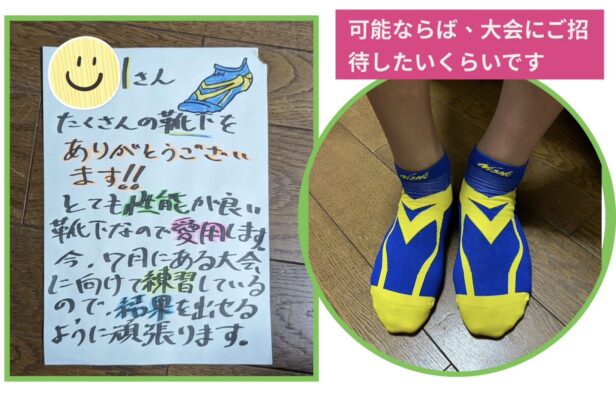 さん
たくさんの靴下を
ありがとうござい
ます!!
とても性能が良い
靴下なので愛用します
今、7月にある大会
に向けて練習している
ので、結果を出せる
ように頑張ります。
可能ならば、大会にご招
待したいくらいです